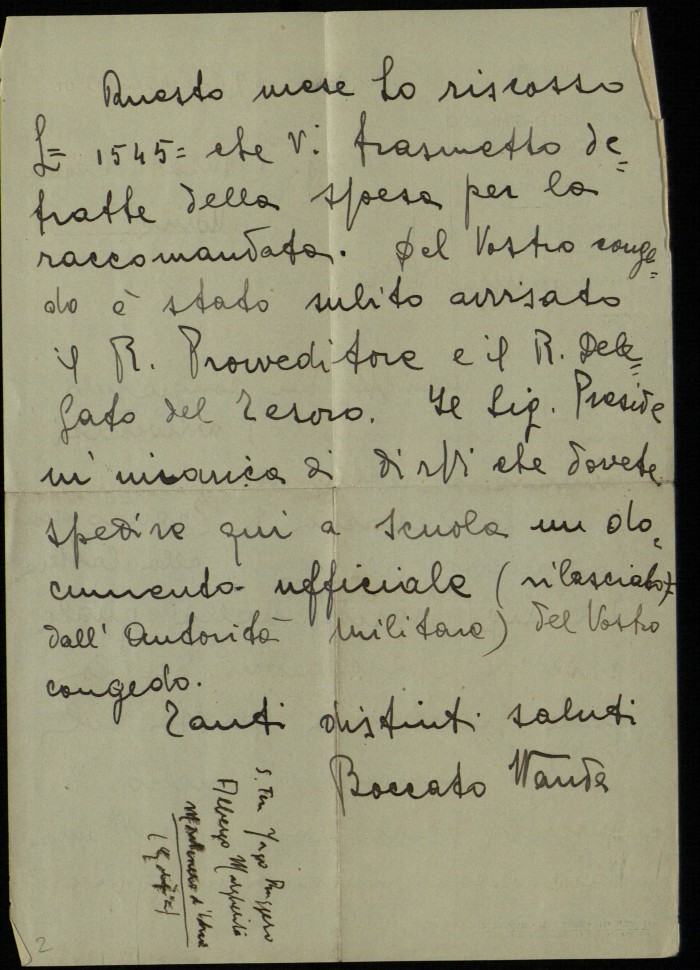 Questo mese ho riscosso
£= 1545= che Vi trasmetto de=
tratte della spesa per la
raccomandata. Del Vostro conge=
do è stato subito avvisato
il R. Provveditore e il R. Dele=
gato del Tesoro. Il Sig. Preside
m'incarica di dirVi che dovete
spedire qui a scuola un do=
cumento ufficiale (rilasciato=
dall'Autorità militare) del Vostro
congedo.
Tanti distinti saluti
Boccato Wanda
S. Ten Ruggero
Albergo Margherita
2